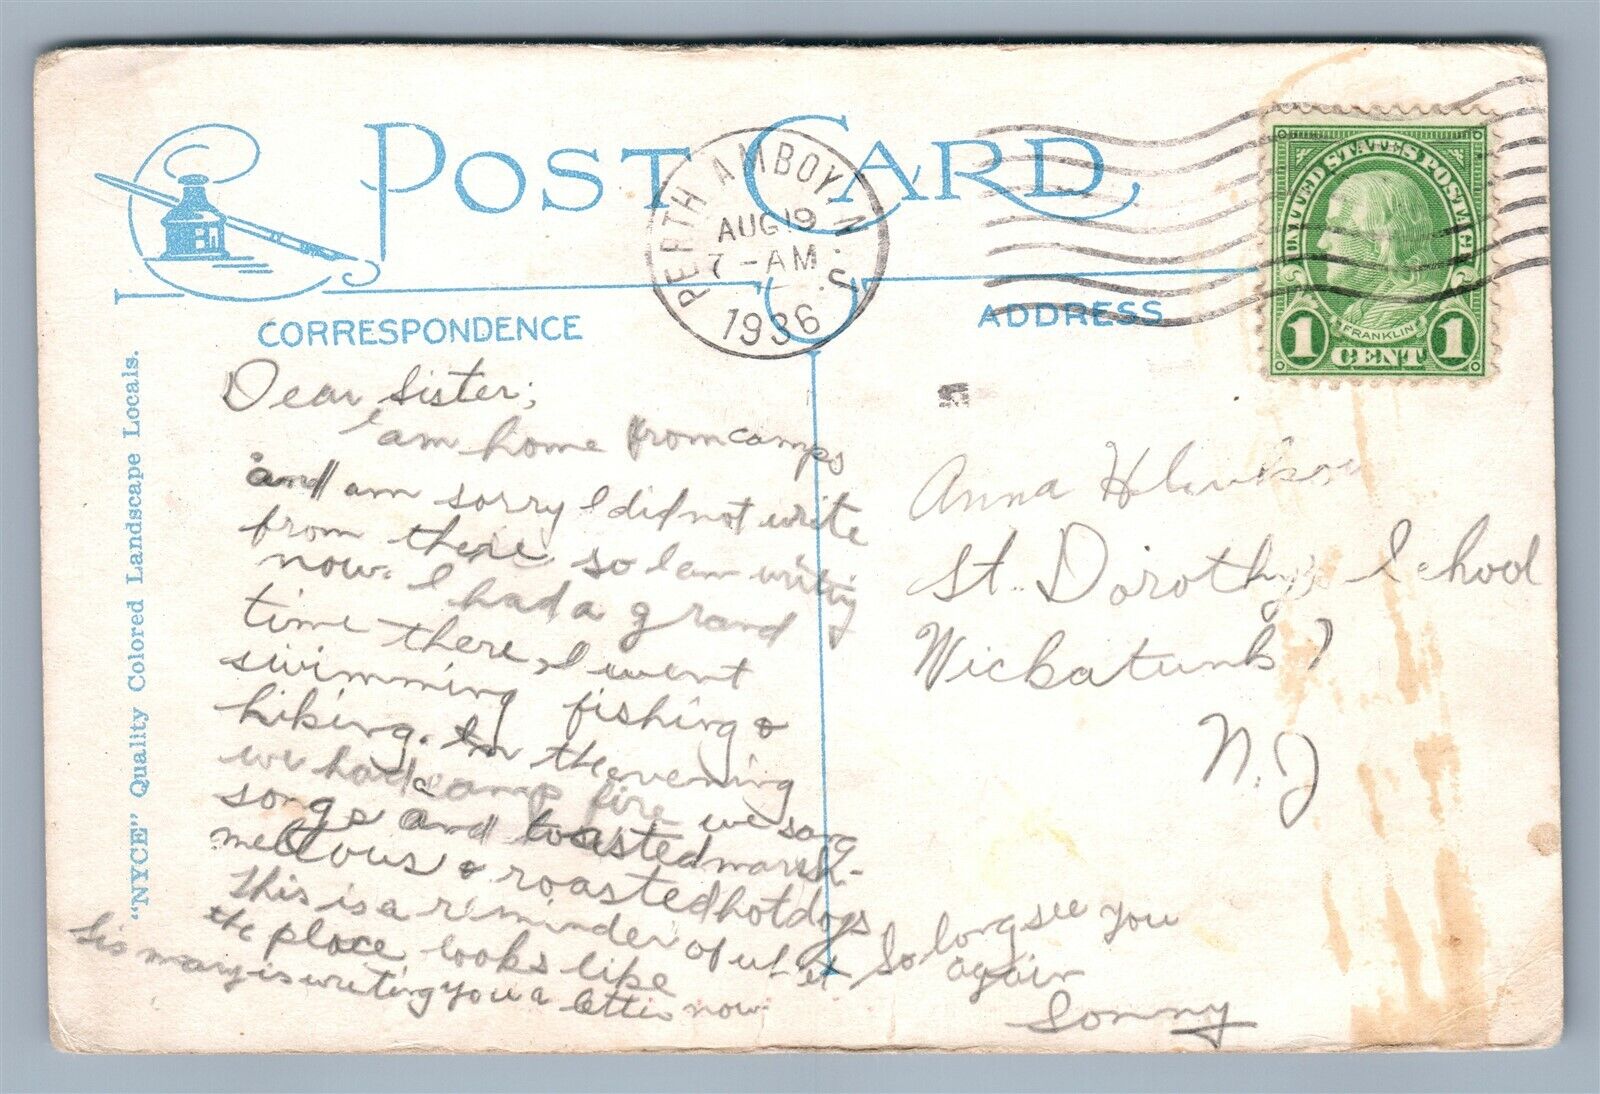 POST CARD
PERTH AMBOY N.S.
AUG 19
7-AM
1936
UNITED STATES POSTAGE
FRANKLIN
1 CENT 1
CORRESPONDENCE
ADDRESS
"NYCE" Quality Colored Landscape Locals.
Dear Sister;
I am home from camps
and am sorry I did not write
from there so I am writing
now. I had a grand
time there, I went
swimming fishing &
hiking. In the evening
we had a camp fire we sang
songs and toasted marsh-
mellous & roasted hotdogs
This is a reminder of what
the place looks like
Sis mary is writing you a letter now.
So long see you
again
Sonny
Anna
St. Dorothy's School
Wickatunk
N.J